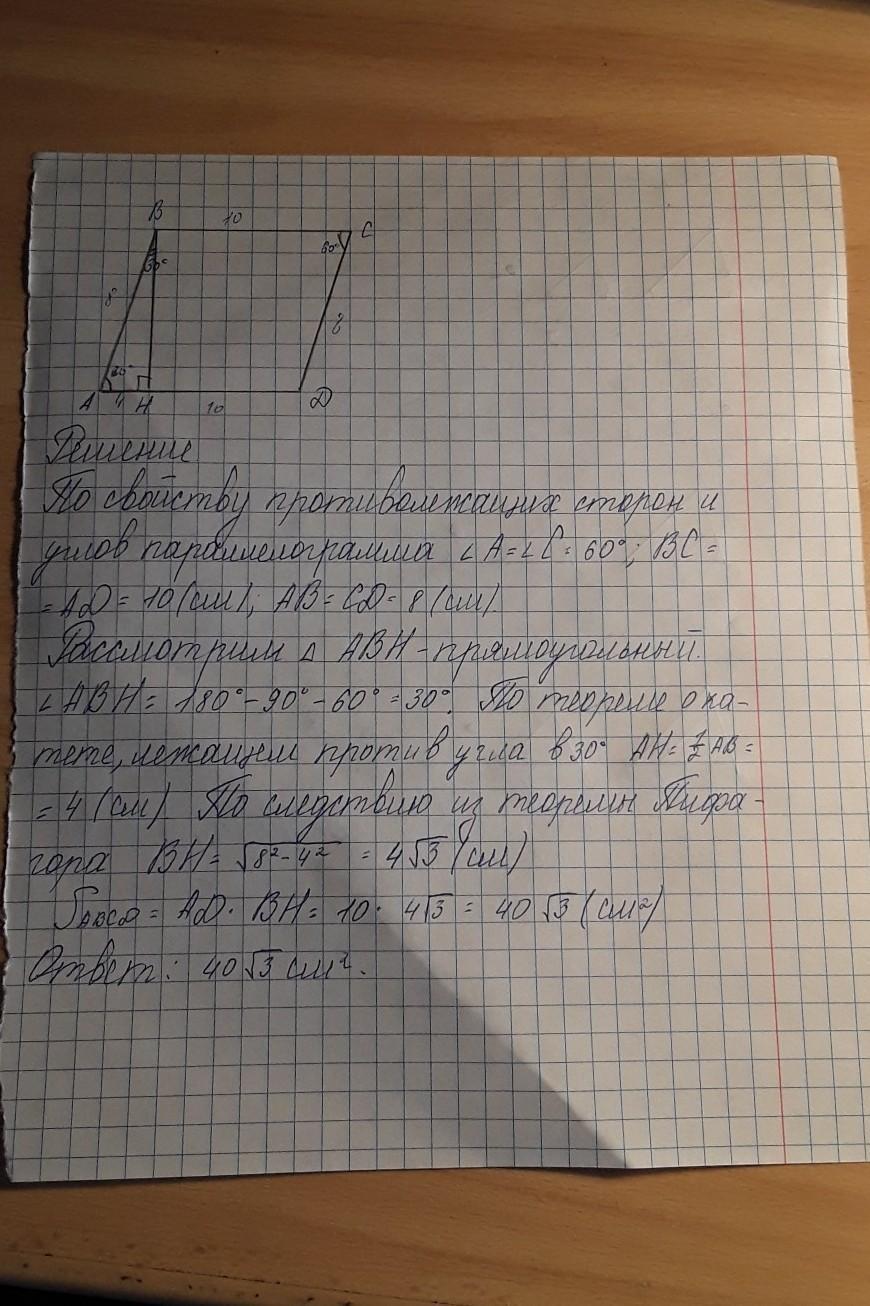 B 10 C
60°
30°
8
8
60°
A 4 H 10 D
Решение
По свойству противолежащих сторон и
углов параллелограмма ∠A=∠C=60°; BC=
=AD=10(см); AB=CD=8(см).
Рассмотрим △ ABH-прямоугольный.
∠ABH=180°-90°-60°=30°. По теореме о ка-
тете, лежащем против угла в 30° AH=½AB=
=4(см) По следствию из теоремы Пифа-
гора BH=√8²-4² = 4√3(см)
SABCD=AD·BH=10·4√3=40√3(см²)
Ответ: 40√3 см².